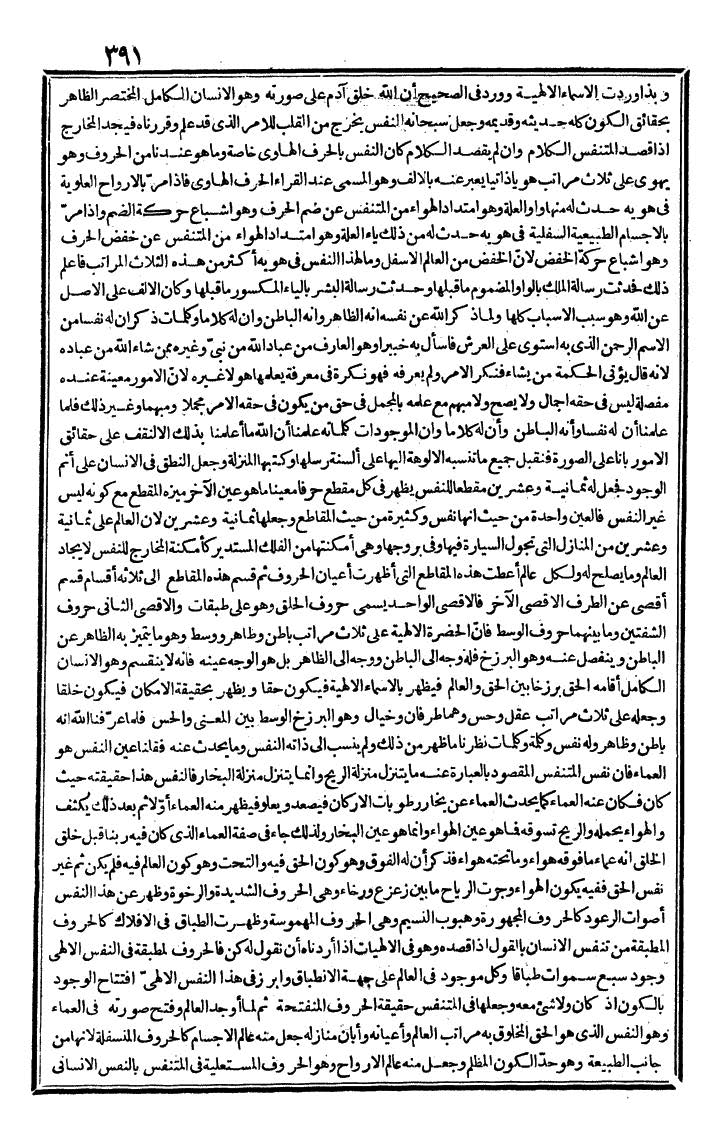 ٣٩١
وبذا وردت الاسماء الالهية وورد فى الصحيح أن الله خلق آدم على صورته وهو الانسان الكامل المختصر الظاهر
بحقائق الكون كله حديثه وقديمه وجعل سبحانه النفس يخرج من القلب للامر الذى قد علم وقررناه فيجد المخارج
اذا قصد المتنفس الكلام وان لم يقصد الكلام كان النفس بالحرف الهاوى خاصة وما هو عندنا من الحروف وهو
يهوى على ثلاث مراتب هو ياذاتيا يعبر عنه بالالف وهو المسمى عند القراء الحرف الهاوى فاذا مرّ بالارواح العلوية
فى هويه حدث له منها واو العلة وهو امتداد الهواء من المتنفس عن ضم الحرف وهو اشباع حركة الضم واذا مرّ
بالاجسام الطبيعية السفلية فى هويه حدث له من ذلك ياء العلة وهو امتداد الهواء من المتنفس عن خفض الحرف
وهو اشباع حركة الخفض لانّ الخفض من العالم الاسفل وما لهذا النفس فى هويه أكثر من هذه الثلاث المراتب فاعلم
ذلك فحدثت رسالة الملك بالواو المضموم ما قبلها وحدثت رسالة البشر بالياء المكسور ما قبلها وكان الالف على الاصل
عن الله وهو سبب الاسباب كلها ولما ذكر الله عن نفسه انه الظاهر وانه الباطن وان له كلاما وكلمات ذكر ان له نفسا من
الاسم الرحمن الذى به استوى على العرش فاسأل به خبيرا وهو العارف من عباد الله من نبىّ وغيره ممن شاء الله من عباده
لانه قال يؤتى الحكمة من يشاء فنكر الامر ولم يعرفه فهو نكرة فى معرفة يعلمها هو لا غيره لانّ الامور معينة عنده
مفصلة ليس فى حقه اجمال ولا يصح ولا مبهم مع علمه بالمجمل فى حق من يكون فى حقه الامر مجملا ومبهما وغير ذلك فلما
علمنا أن له نفسا وأنه الباطن وأن له كلاما وان الموجودات كلماته علمنا أن الله ما أعلمنا بذلك الا لنقف على حقائق
الامور بانا على الصورة فنقبل جميع ما تنسبه الالوهة اليها على ألسنة رسلها وكتبها المنزلة وجعل النطق فى الانسان على أتم
الوجود فجعل له ثمانية وعشرين مقطعا للنفس يظهر فى كل مقطع حرفا معينا ما هو عين الآخر ميزه المقطع مع كونه ليس
غير النفس فالعين واحدة من حيث انها نفس وكثيرة من حيث المقاطع وجعلها ثمانية وعشرين لان العالم على ثمانية
وعشرين من المنازل التى تجول السيارة فيها وفى بروجها وهى أمكنتها من الفلك المستدير كأمكنة المخارج للنفس لايجاد
العالم وما يصلح له ولكل عالم أعطت هذه المقاطع التى أظهرت أعيان الحروف ثم قسم هذه المقاطع الى ثلاثه أقسام قسم
أقصى عن الطرف الاقصى الآخر فالاقصى الواحد يسمى حروف الحلق وهو على طبقات والاقصى الثانى حروف
الشفتين وما بينهما حروف الوسط فانّ الحضرة الالهية على ثلاث مراتب باطن وظاهر ووسط وهو ما يتميز به الظاهر عن
الباطن وينفصل عنه وهو البرزخ فله وجه الى الباطن ووجه الى الظاهر بل هو الوجه عينه فانه لا ينقسم وهو الانسان
الكامل أقامه الحق برزخا بين الحق والعالم فيظهر بالاسماء الالهية فيكون حقا ويظهر بحقيقة الامكان فيكون خلقا
وجعله على ثلاث مراتب عقل وحس وهما طرفان وخيال وهو البرزخ الوسط بين المعنى والحس فلما عرّفنا الله انه
باطن وظاهر وله نفس وكلمة وكلمات نظرنا ما ظهر من ذلك ولم ينسب الى ذاته النفس وما يحدث عنه فقلنا عين النفس هو
العماء فان نفس المتنفس المقصود بالعبارة عنه ما يتنزل منزلة الريح وانما يتنزل منزلة البخار فالنفس هذا حقيقته حيث
كان فكان عنه العماء كما يحدث العماء عن بخار رطوبات الاركان فيصعد ويعلو فيظهر منه العماء أوّلا ثم بعد ذلك يكثف
والهواء يحمله والريح تسوقه فما هو عين الهواء وانما هو عين البخار ولذلك جاء فى صفة العماء الذى كان فيه ربنا قبل خلق
الخلق انه عماء ما فوقه هواء وما تحته هواء فذكر أن له الفوق وهو كون الحق فيه والتحت وهو كون العالم فيه فلم يكن ثم غير
نفس الحق ففيه يكون الهواء وجرت الرياح ما بين زعزع ورخاء وهى الحروف الشديدة والرخوة وظهر عن هذا النفس
أصوات الرعود كالحروف المجهورة وهبوب النسيم وهى الحروف المهموسة وظهرت الطباق فى الافلاك كالحروف
المطبقة من تنفس الانسان بالقول اذا قصده وهو فى الالهيات اذا أردناه أن نقول له كن فالحروف المطبقة فى النفس الالهى
وجود سبع سموات طباقا وكل موجود فى العالم على جهة الانطباق وابرز فى هذا النفس الالهىّ افتتاح الوجود
بالكون اذ كان ولا شئ معه وجعلها فى المتنفس حقيقة الحروف المنفتحة ثم لما أوجد العالم وفتح صورته فى العماء
وهو النفس الذى هو الحق المخلوق به مراتب العالم وأعيانه وأبان منازله جعل منه عالم الاجسام كالحروف المنسفلة لانها من
جانب الطبيعة وهو حدّ الكون المظلم وجعل منه عالم الارواح وهو الحروف المستعلية فى المتنفس بالنفس الانسانى